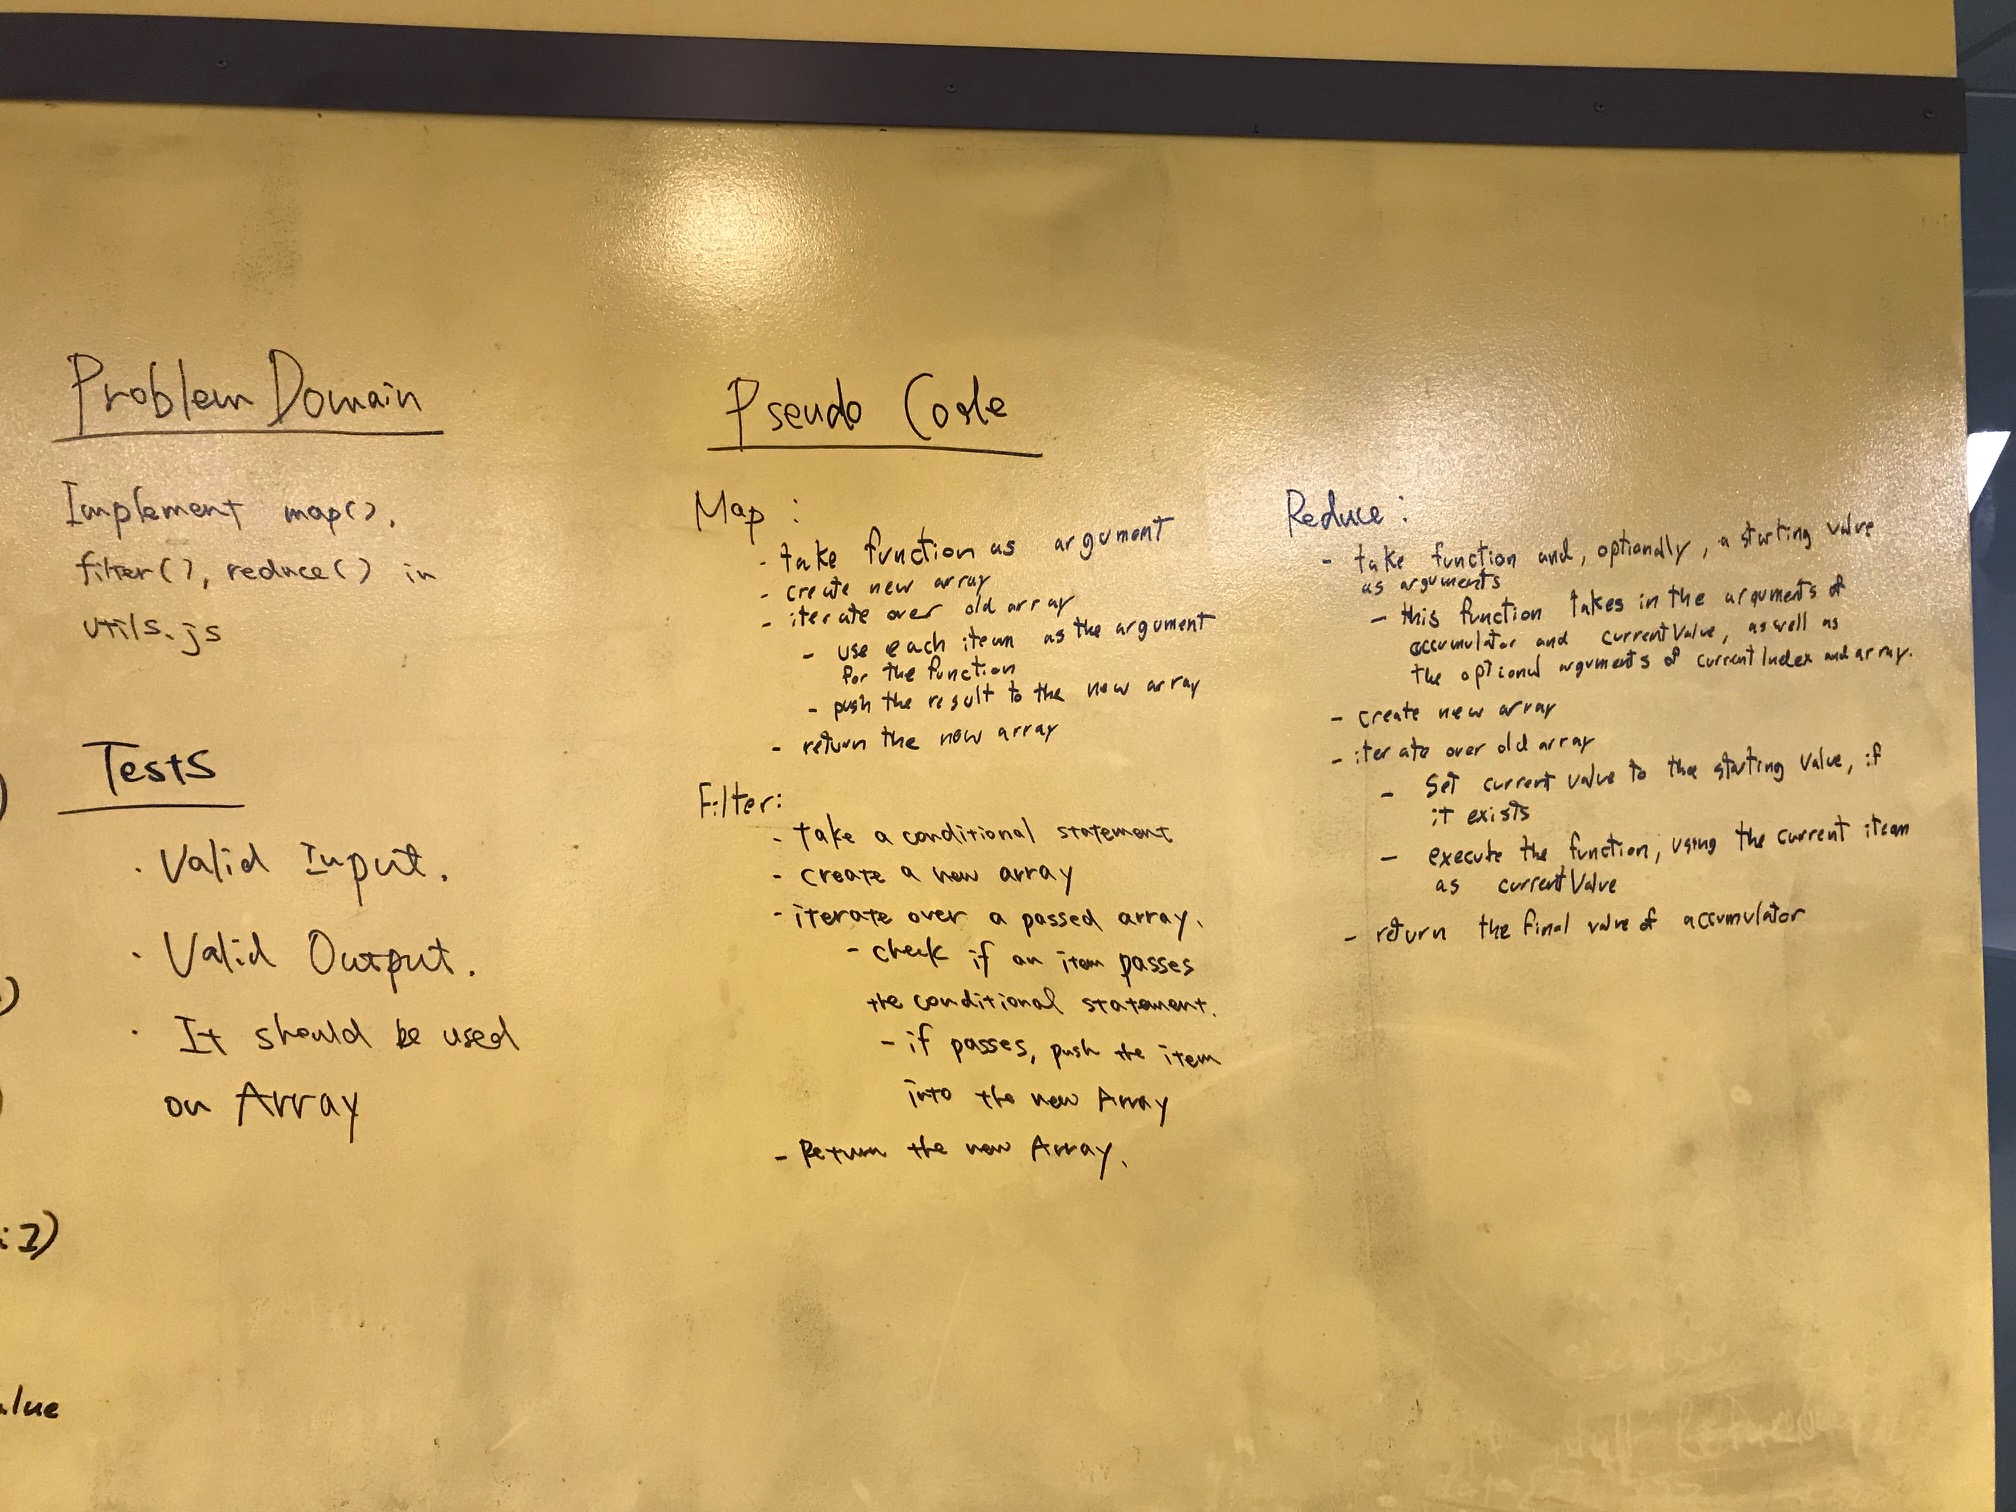 Problem Domain
Implement map(),
filter(), reduce() in
utils.js
Tests
· Valid Input.
· Valid Output.
· It should be used
on Array
:2)
alue
Pseudo Code
Map :
- take function as argument
- create new array
- iterate over old array
- use each item as the argument
for the function
- push the result to the new array
- return the new array
Filter:
- take a conditional statement
- create a new array
- iterate over a passed array.
- check if an item passes
the conditional statement.
- if passes, push the item
into the new Array
- Return the new Array.
Reduce:
- take function and, optionally, a starting value
as arguments
- this function takes in the arguments of
accumulator and currentValue, as well as
the optional arguments of currentIndex and array.
- create new array
- iterate over old array
- Set current value to the starting value, if
it exists
- execute the function, using the current item
as currentValue
- return the final value of accumulator